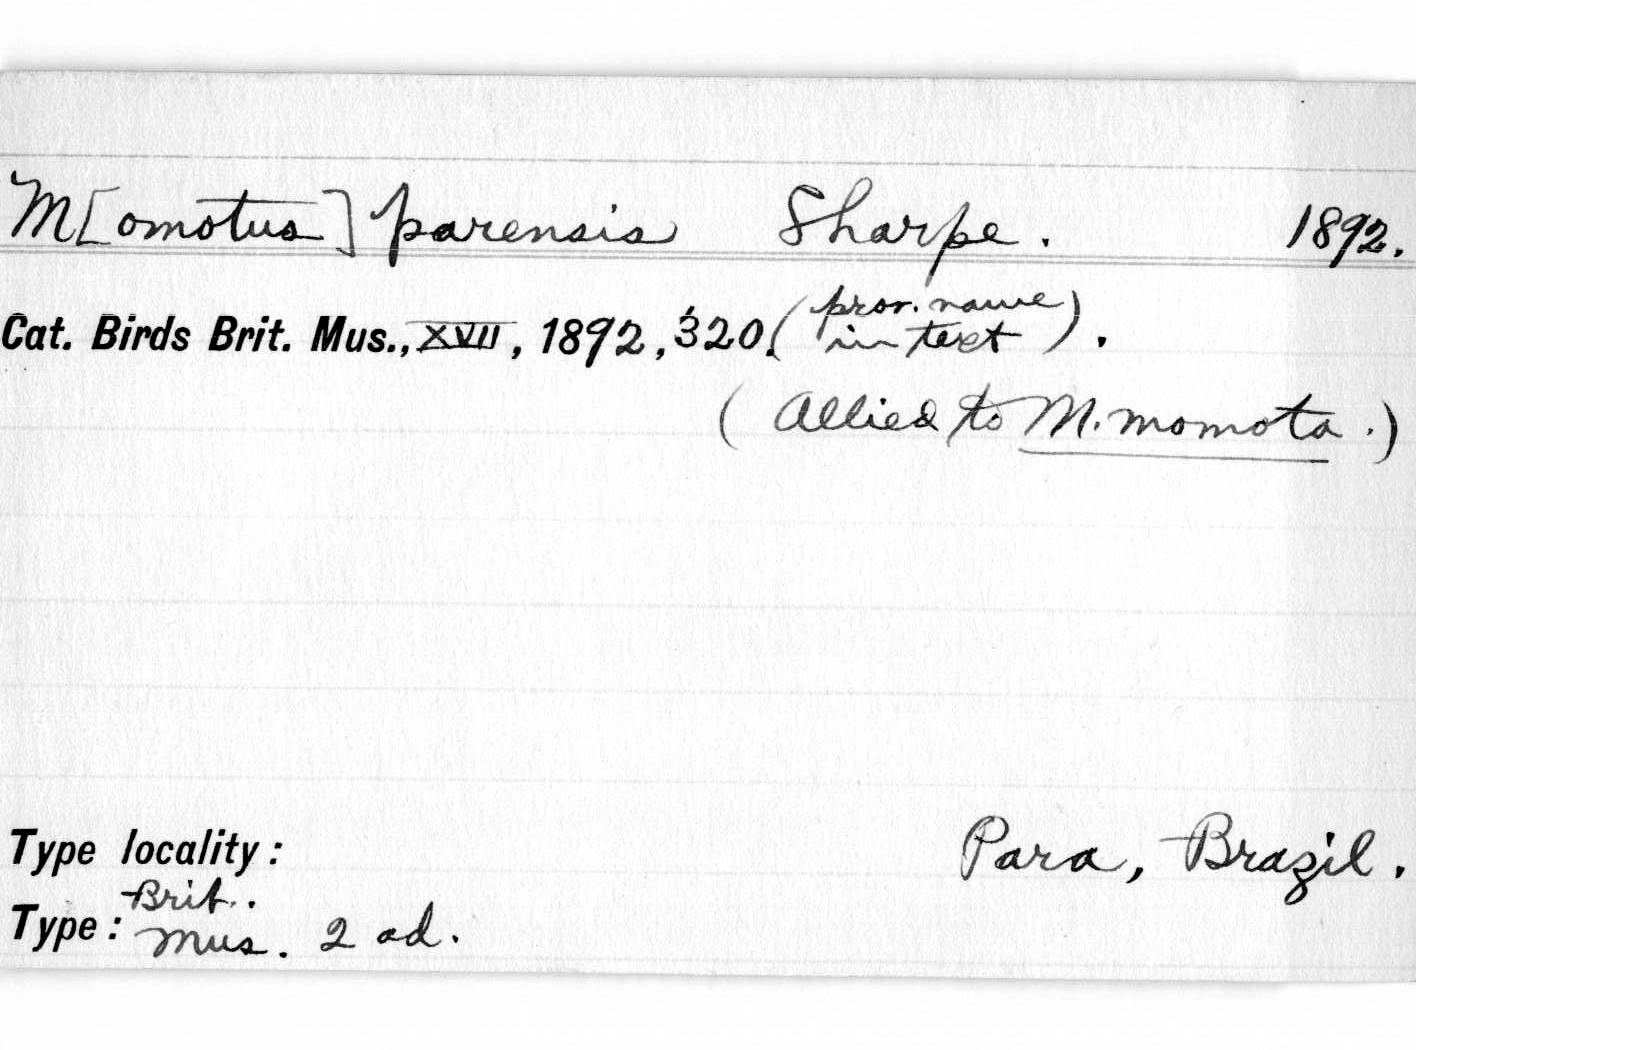 M[omotus] parensis Sharpe. 1892.
Cat. Birds Brit. Mus., XVII, 1892, 320. (prov. name in text).
(Allied to M. momota.)
Type locality: Para, Brazil.
Type: Brit. Mus. 2 ad.